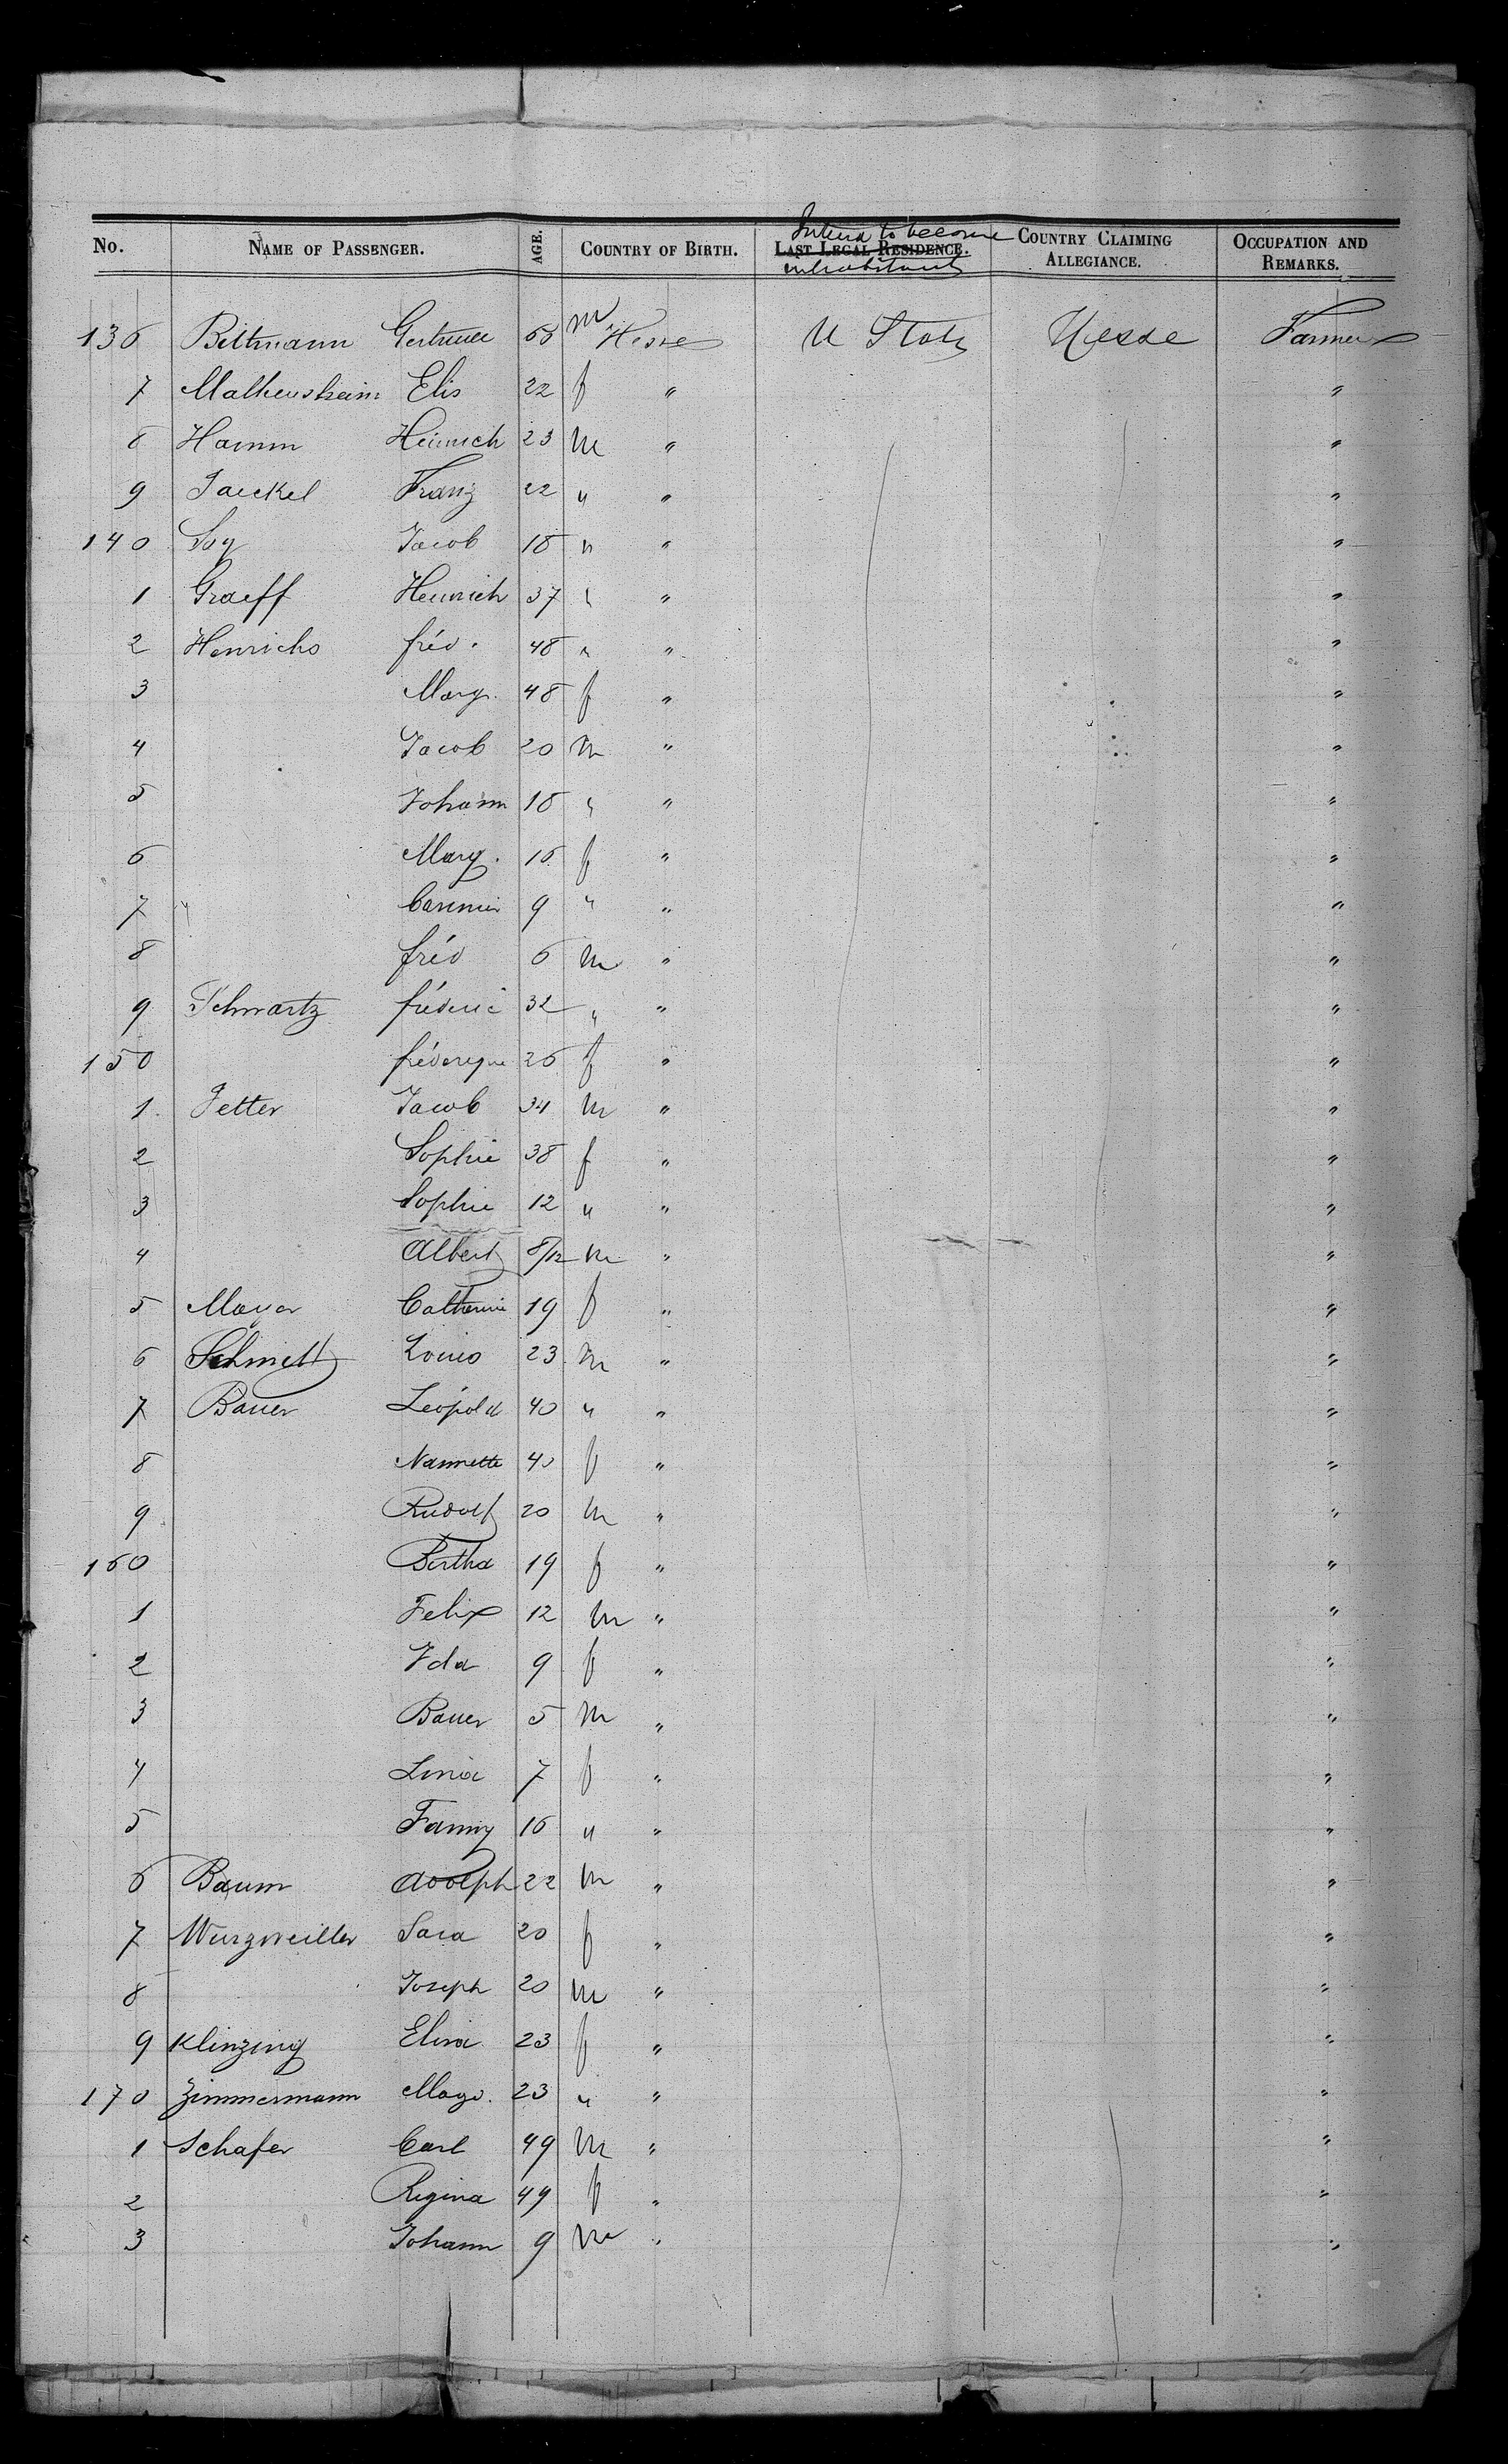 Intend to become
No. NAME OF PASSENGER. AGE. COUNTRY OF BIRTH. LAST LEGAL RESIDENCE. COUNTRY CLAIMING ALLEGIANCE. OCCUPATION AND REMARKS.
inhabitants
136 Bittmann Gertrude m Hesse U States Hesse Farmer
7 Elis 22 f " "
8 Hamm Heinrich 23 m " "
9 Jaeckel Franz 22 " " "
140 Jacob 18 " " "
1 Graeff Heinrich 37 " " "
2 Henrichs fréd. 48 " " "
3 Marg. 48 f " "
4 Jacob 20 m " "
5 Johann 18 " " "
6 Marg. 16 f " "
7 9 " " "
8 fréd 6 m " "
9 Schwartz fréderic 32 " " "
150 26 f " "
1 Jetter Jacob 34 m " "
2 Sophie 38 f " "
3 Sophie 12 " " "
4 Albert 8/12 m " "
5 Mayer Catherine 19 f " "
6 Schmitt Louis 23 m " "
7 Bauer Léopold 40 " " "
8 Nannette 40 f " "
9 Rudolf 20 m " "
160 Bertha 19 f " "
1 Felix 12 m " "
2 Ida 9 f " "
3 Bauer 5 m " "
4 Lina 7 f " "
5 Fanny 16 " " "
6 Baum Adolph 22 m " "
7 Wurzweiller Sara 20 f " "
8 Joseph 20 m " "
9 Klinzing Elisa 23 f " "
170 Zimmermann Magd. 23 " " "
1 Schafer Carl 49 m " "
2 Regina 49 f " "
3 Johann 9 m " "